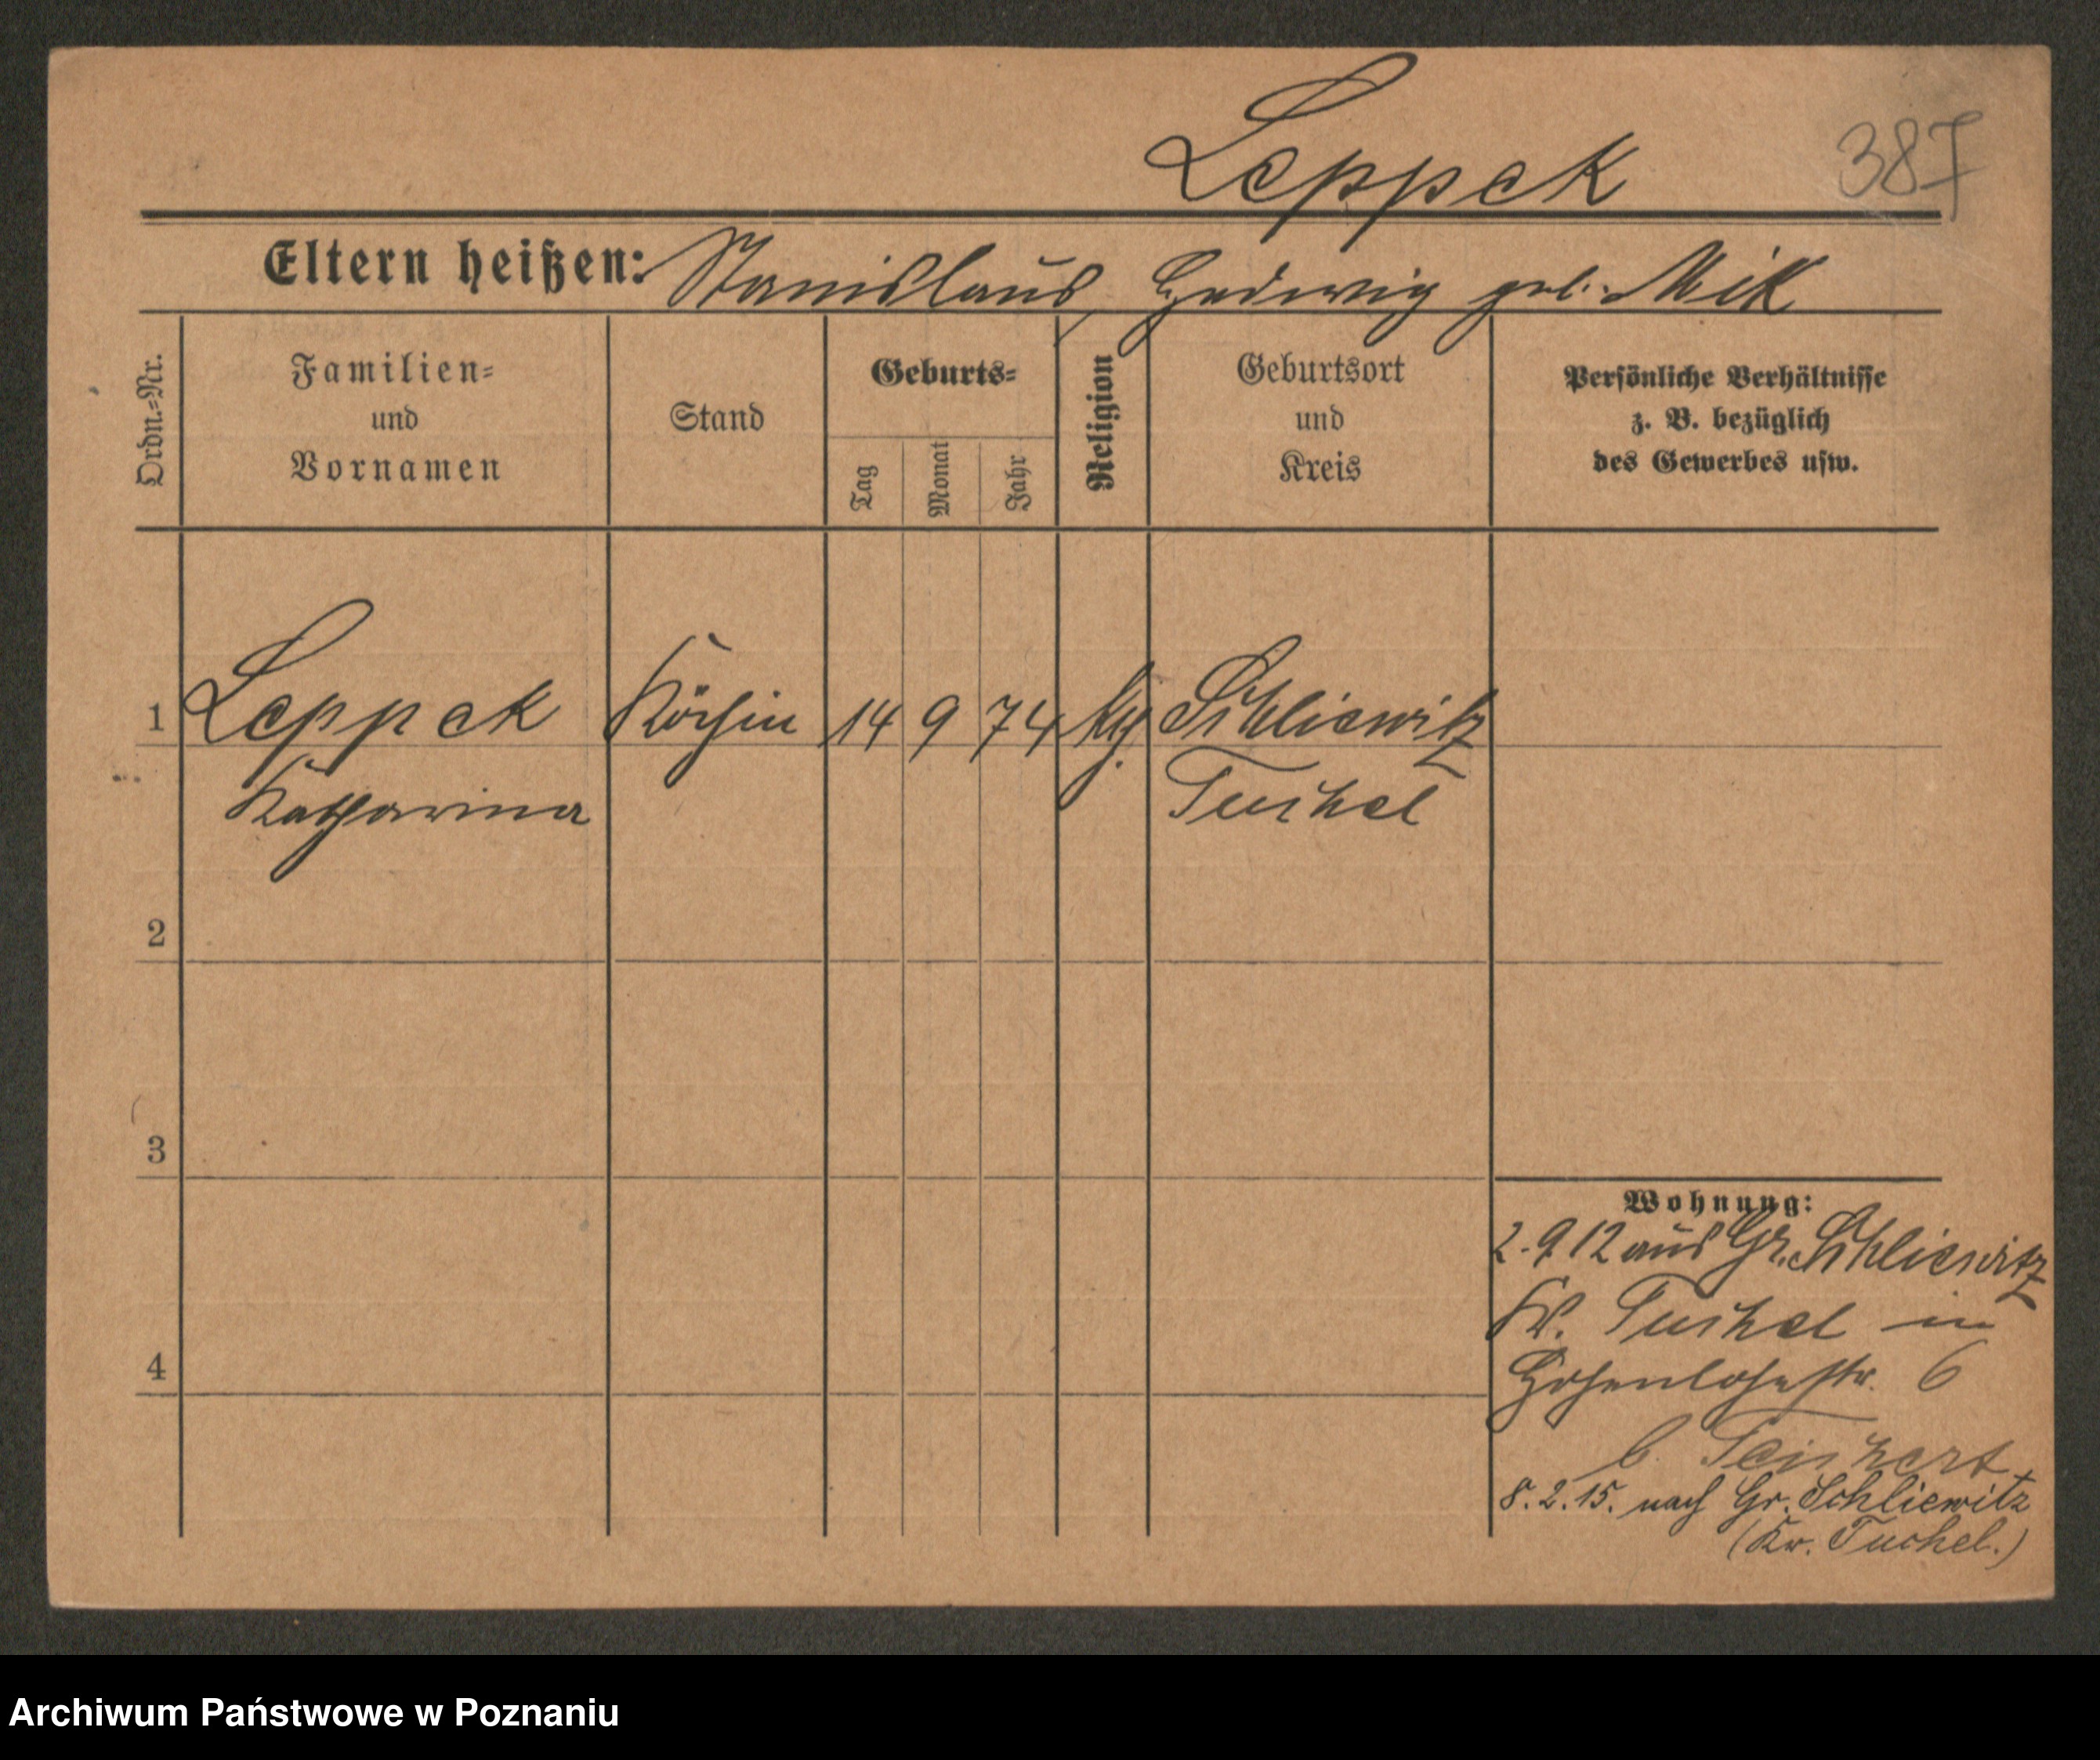 Leppek
387
Eltern heißen: Stanislaus, Hedwig geb. Mik
Ordn.=Nr.
Familien=
und
Vornamen
Stand
Geburts=
Tag
Monat
Jahr
Religion
Geburtsort
und
Kreis
Persönliche Verhältnisse
z. B. bezüglich
des Gewerbes usw.
1 Leppek Köchin 14 9 74 Schliewitz
Katharina Tuchel
2
3
4
Wohnung:
2.9.12 aus Gr. Schliewitz
Kr. Tuchel in
Hohenlohestr. 6
b. Teichert
8.2.15. nach Gr. Schliewitz
(Kr. Tuchel.)
Archiwum Państwowe w Poznaniu